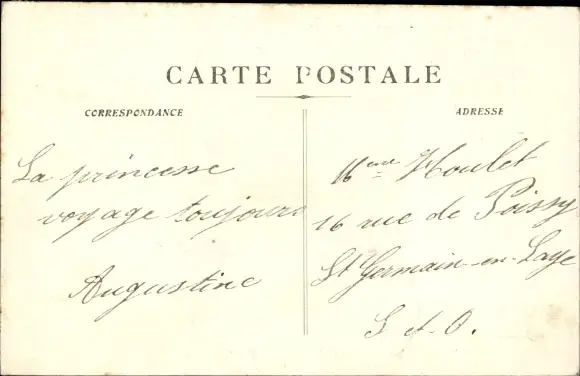 CARTE POSTALE
CORRESPONDANCE
ADRESSE
La princesse
voyage toujours
Augustine
Mme Moulet
16 rue de Poissy
St Germain-en-Laye
S et O.